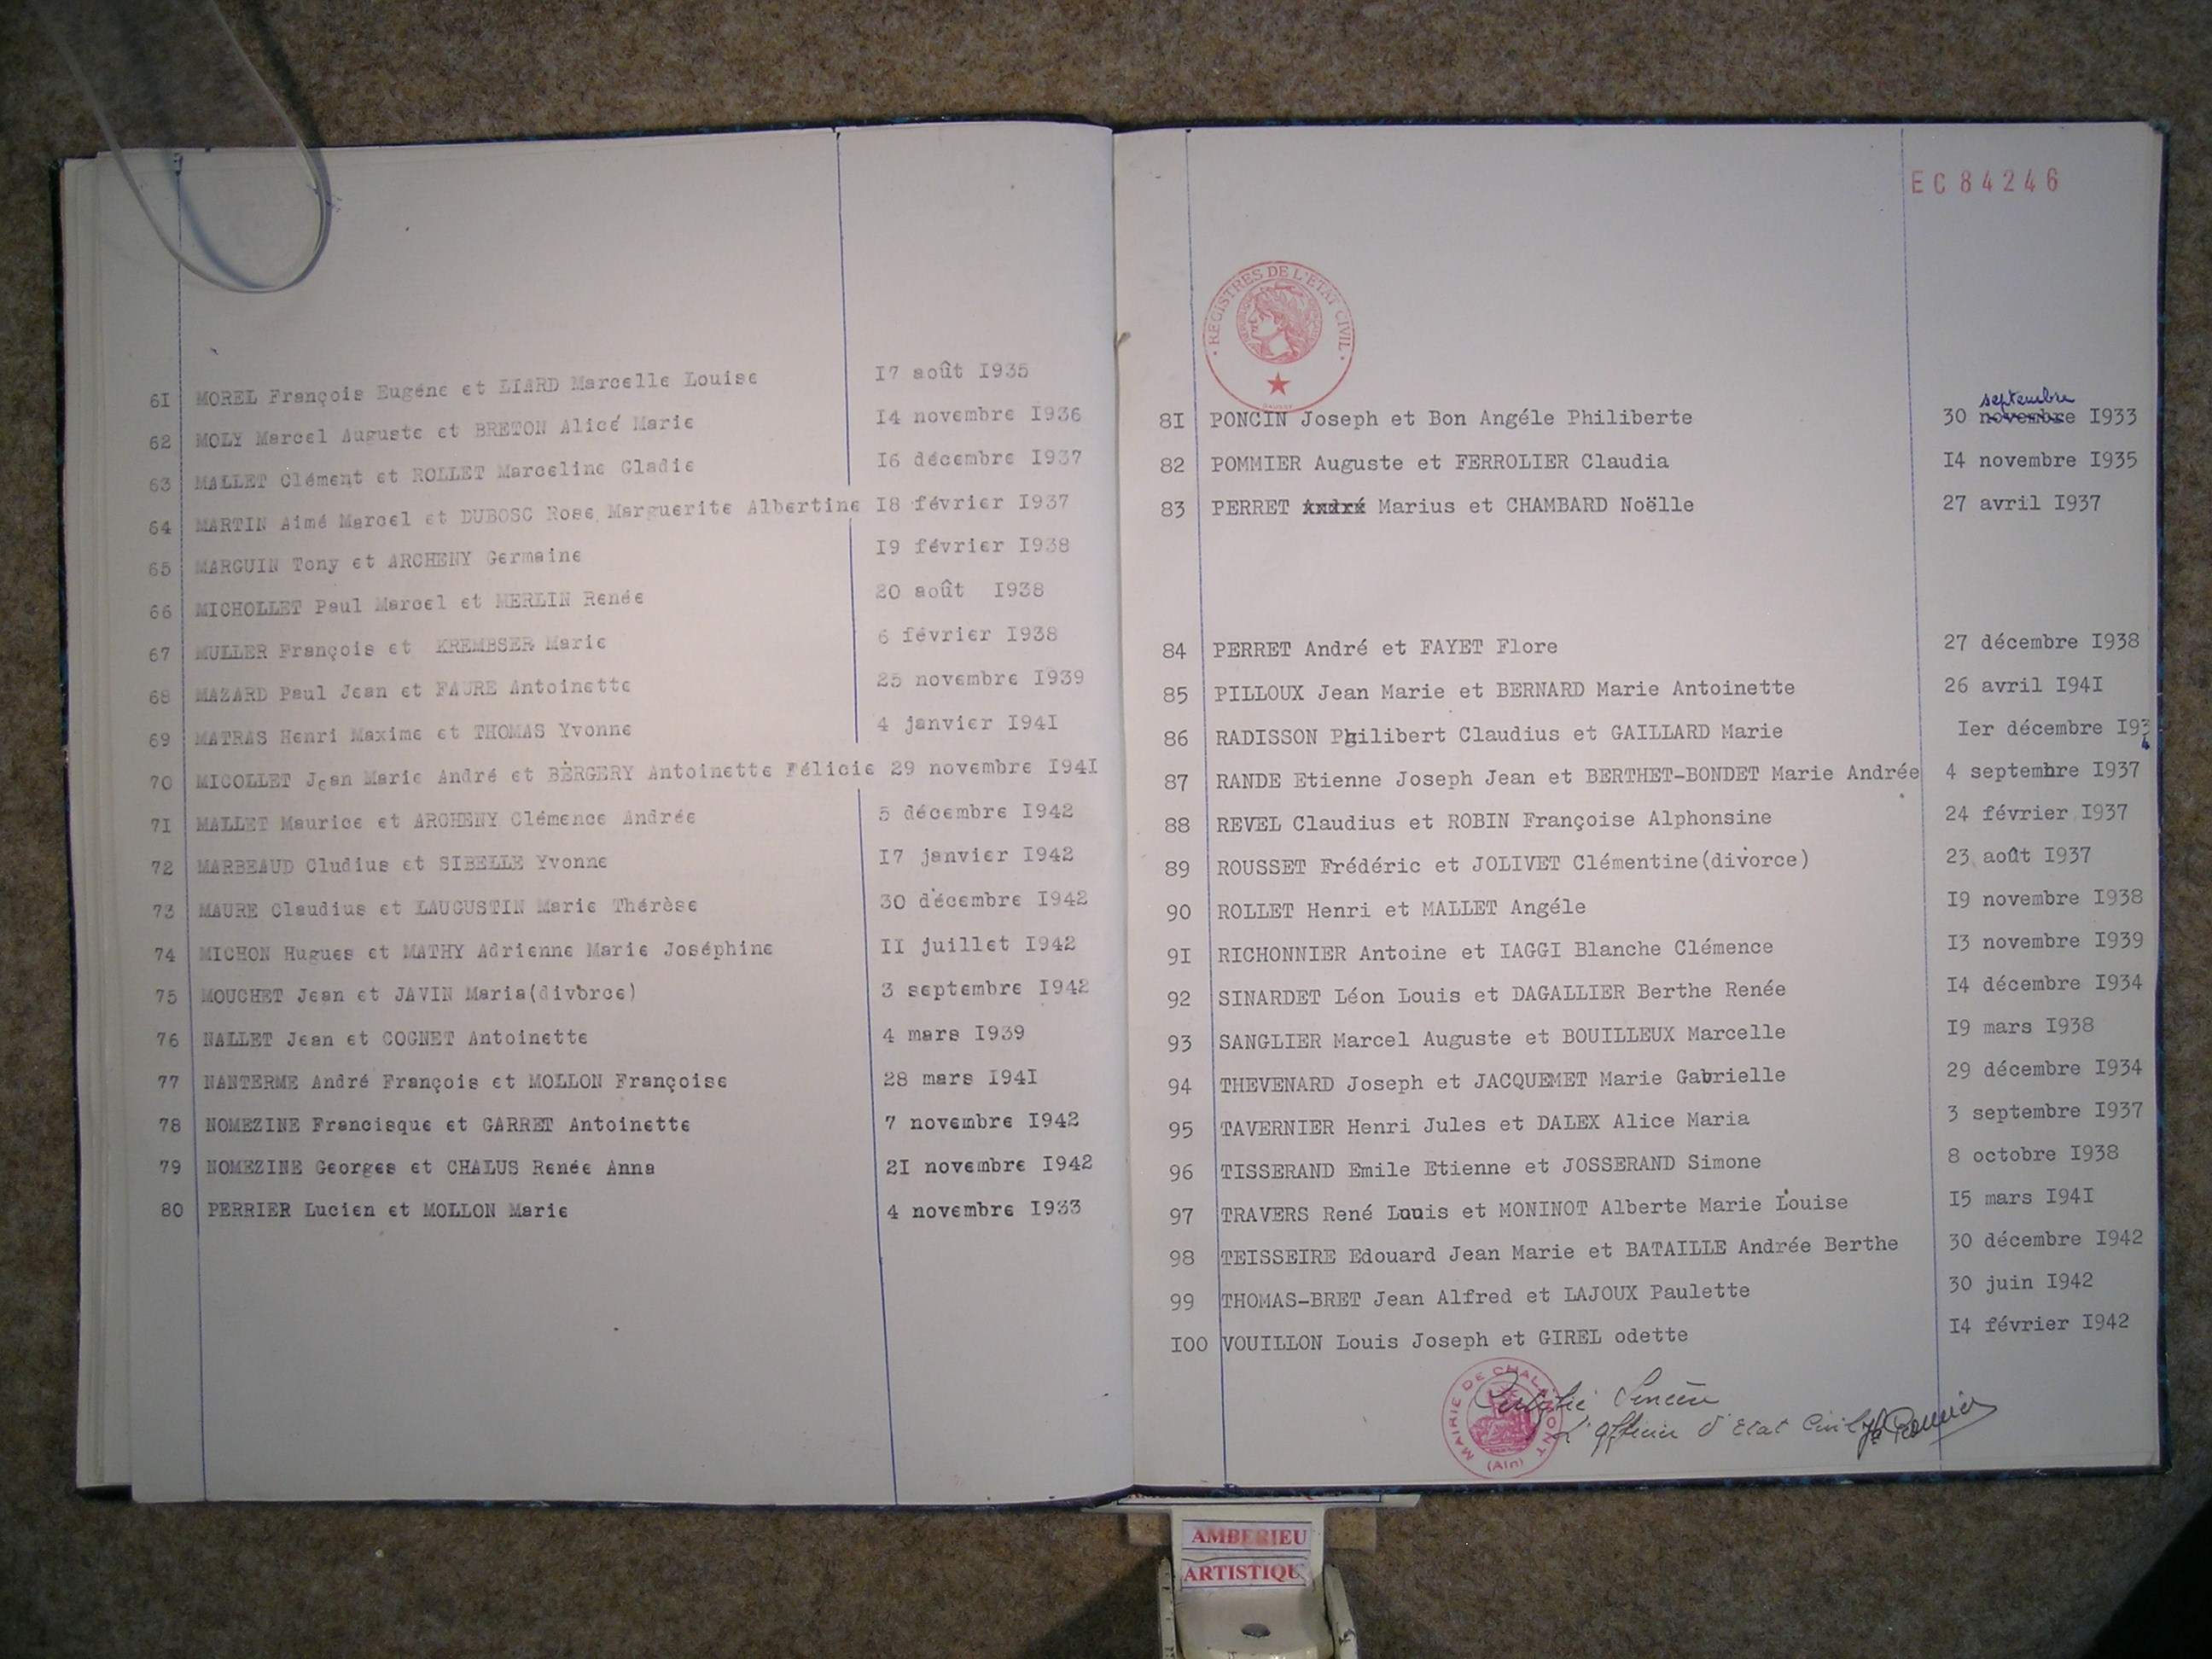 6I MOREL François Eugéne et LIARD Marcelle Louise I7 août I935
62 MOLY Marcel Auguste et BRETON Alice Marie I4 novembre I936
63 MALLET Clément et ROLLET Marceline Gladie I6 décembre I937
64 MARTIN Aimé Marcel et DUBOSC Rose Marguerite Albertine I8 février I937
65 MARGUIN Tony et ARCHENY Germaine I9 février I938
66 MICHOLLET Paul Marcel et MERLIN Renée 20 août I938
67 MULLER François et KREMBSER Marie 6 février I938
68 MAZARD Paul Jean et FAURE Antoinette 25 novembre I939
69 MATRAS Henri Maxime et THOMAS Yvonne 4 janvier I94I
70 MICOLLET Jean Marie André et BERGERY Antoinette Félicie 29 novembre I94I
7I MALLET Maurice et ARCHENY Clémence Andrée 5 décembre I942
72 MARBEAUD Cludius et SIBELLE Yvonne I7 janvier I942
73 MAURE Claudius et LAUGUSTIN Marie Thérèse 30 décembre I942
74 MICHON Hugues et MATHY Adrienne Marie Joséphine II juillet I942
75 MOUCHET Jean et JAVIN Maria(divorce) 3 septembre I942
76 NALLET Jean et COGNET Antoinette 4 mars I939
77 NANTERME André François et MOLLON Françoise 28 mars I94I
78 NOMEZINE Francisque et GARRET Antoinette 7 novembre I942
79 NOMEZINE Georges et CHALUS Renée Anna 2I novembre I942
80 PERRIER Lucien et MOLLON Marie 4 novembre I933
EC84246
REGISTRES DE L'ETAT CIVIL
septembre
8I PONCIN Joseph et Bon Angéle Philiberte 30 novembre I933
82 POMMIER Auguste et FERROLIER Claudia I4 novembre I935
83 PERRET André Marius et CHAMBARD Noëlle 27 avril I937
84 PERRET André et FAYET Flore 27 décembre I938
85 PILLOUX Jean Marie et BERNARD Marie Antoinette 26 avril I94I
86 RADISSON Philibert Claudius et GAILLARD Marie Ier décembre I93
87 RANDE Etienne Joseph Jean et BERTHET-BONDET Marie Andrée 4 septembre I937
88 REVEL Claudius et ROBIN Françoise Alphonsine 24 février I937
89 ROUSSET Frédéric et JOLIVET Clémentine(divorce) 23 août I937
90 ROLLET Henri et MALLET Angéle I9 novembre I938
9I RICHONNIER Antoine et IAGGI Blanche Clémence I3 novembre I939
92 SINARDET Léon Louis et DAGALLIER Berthe Renée I4 décembre I934
93 SANGLIER Marcel Auguste et BOUILLEUX Marcelle I9 mars I938
94 THEVENARD Joseph et JACQUEMET Marie Gabrielle 29 décembre I934
95 TAVERNIER Henri Jules et DALEX Alice Maria 3 septembre I937
96 TISSERAND Emile Etienne et JOSSERAND Simone 8 octobre I938
97 TRAVERS René Louis et MONINOT Alberte Marie Louise I5 mars I94I
98 TEISSEIRE Edouard Jean Marie et BATAILLE Andrée Berthe 30 décembre I942
99 THOMAS-BRET Jean Alfred et LAJOUX Paulette 30 juin I942
I00 VOUILLON Louis Joseph et GIREL odette I4 février I942
MAIRIE DE CHALAMONT (Ain)
Certifié Sincère
L'Officier d'Etat Civil
AMBERIEU
ARTISTIQU